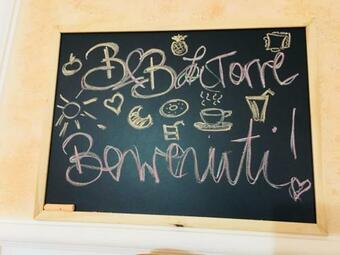 B&B La Torre
Benvenuti!